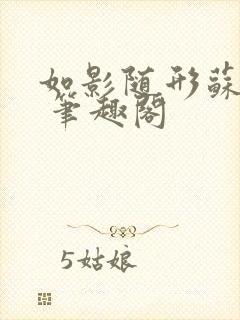 如影随形蘇
笔趣阁
5姑娘